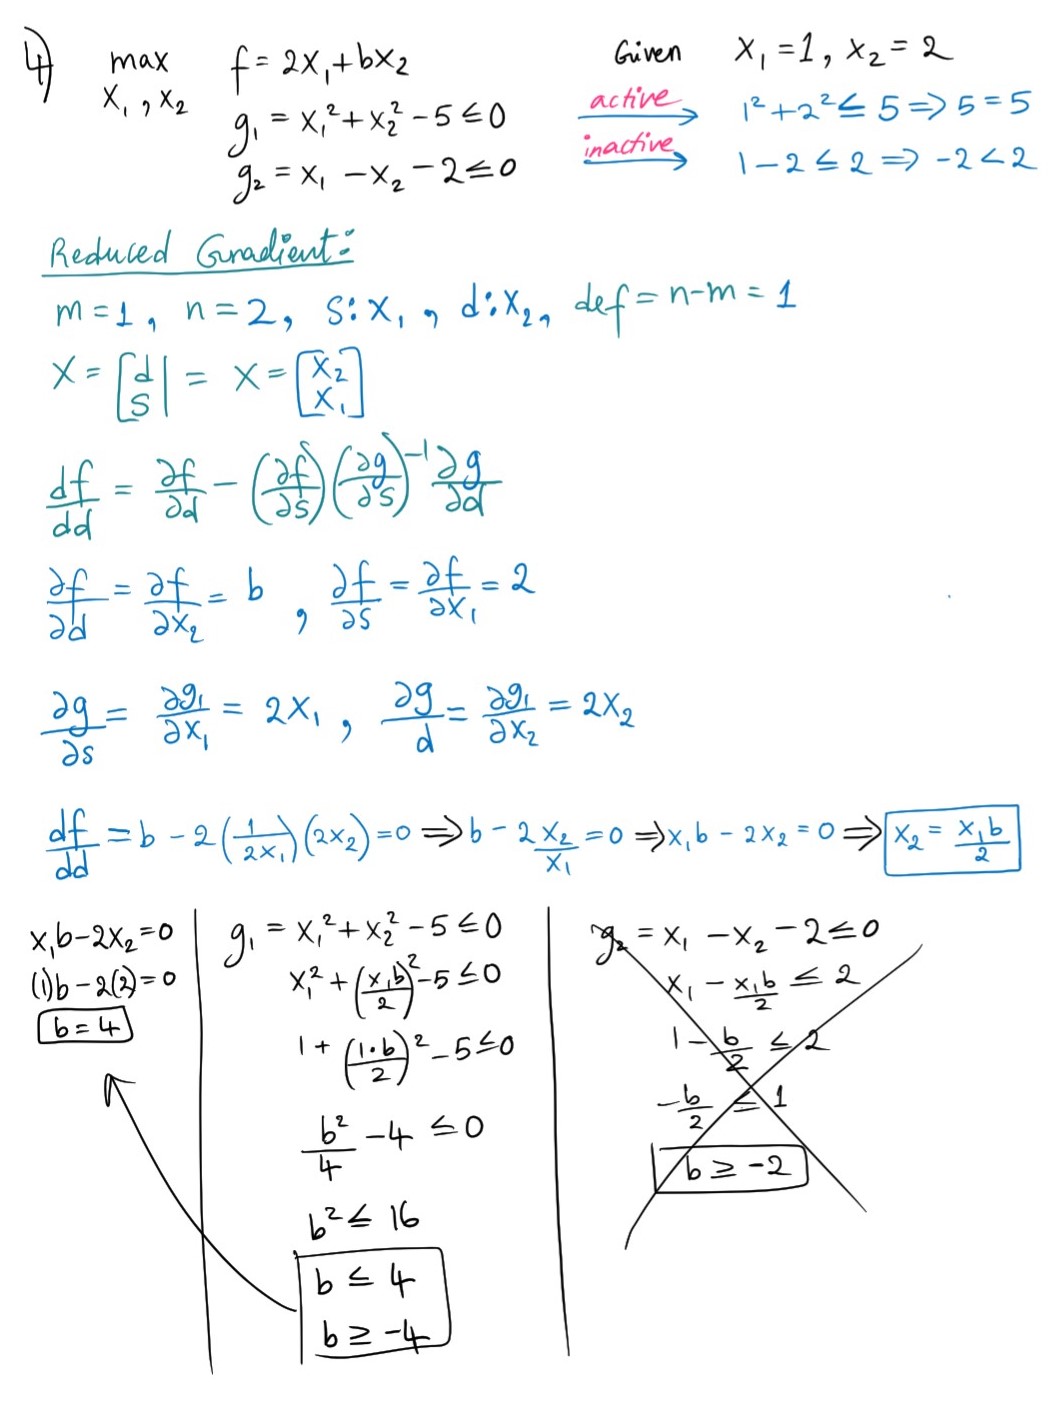 4) max x₁, x₂ f = 2x₁ + bx₂ Given x₁ = 1, x₂ = 2
g₁ = x₁² + x₂² - 5 ≤ 0 active 1² + 2² ≤ 5 ⇒ 5 = 5
g₂ = x₁ - x₂ - 2 ≤ 0 inactive 1 - 2 ≤ 2 ⇒ -2 < 2
Reduced Gradient:
m = 1, n = 2, s: x₁, d: x₂, def = n-m = 1
X = [d s] = X = [x₂ x₁]
df/dd = ∂f/∂d - (∂f/∂s)(∂g/∂s)⁻¹ ∂g/∂d
∂f/∂d = ∂f/∂x₂ = b, ∂f/∂s = ∂f/∂x₁ = 2
∂g/∂s = ∂g₁/∂x₁ = 2x₁, ∂g/d = ∂g₁/∂x₂ = 2x₂
df/dd = b - 2(1/2x₁)(2x₂) = 0 ⇒ b - 2x₂/x₁ = 0 ⇒ x₁b - 2x₂ = 0 ⇒ x₂ = x₁b/2
x₁b - 2x₂ = 0
(1)b - 2(2) = 0
b = 4
g₁ = x₁² + x₂² - 5 ≤ 0
x₁² + (x₁b/2)² - 5 ≤ 0
1 + (1·b/2)² - 5 ≤ 0
b²/4 - 4 ≤ 0
b² ≤ 16
b ≤ 4
b ≥ -4
g₂ = x₁ - x₂ - 2 ≤ 0
x₁ - x₁b/2 ≤ 2
1 - b/2 ≤ 2
-b/2 ≤ 1
b ≥ -2